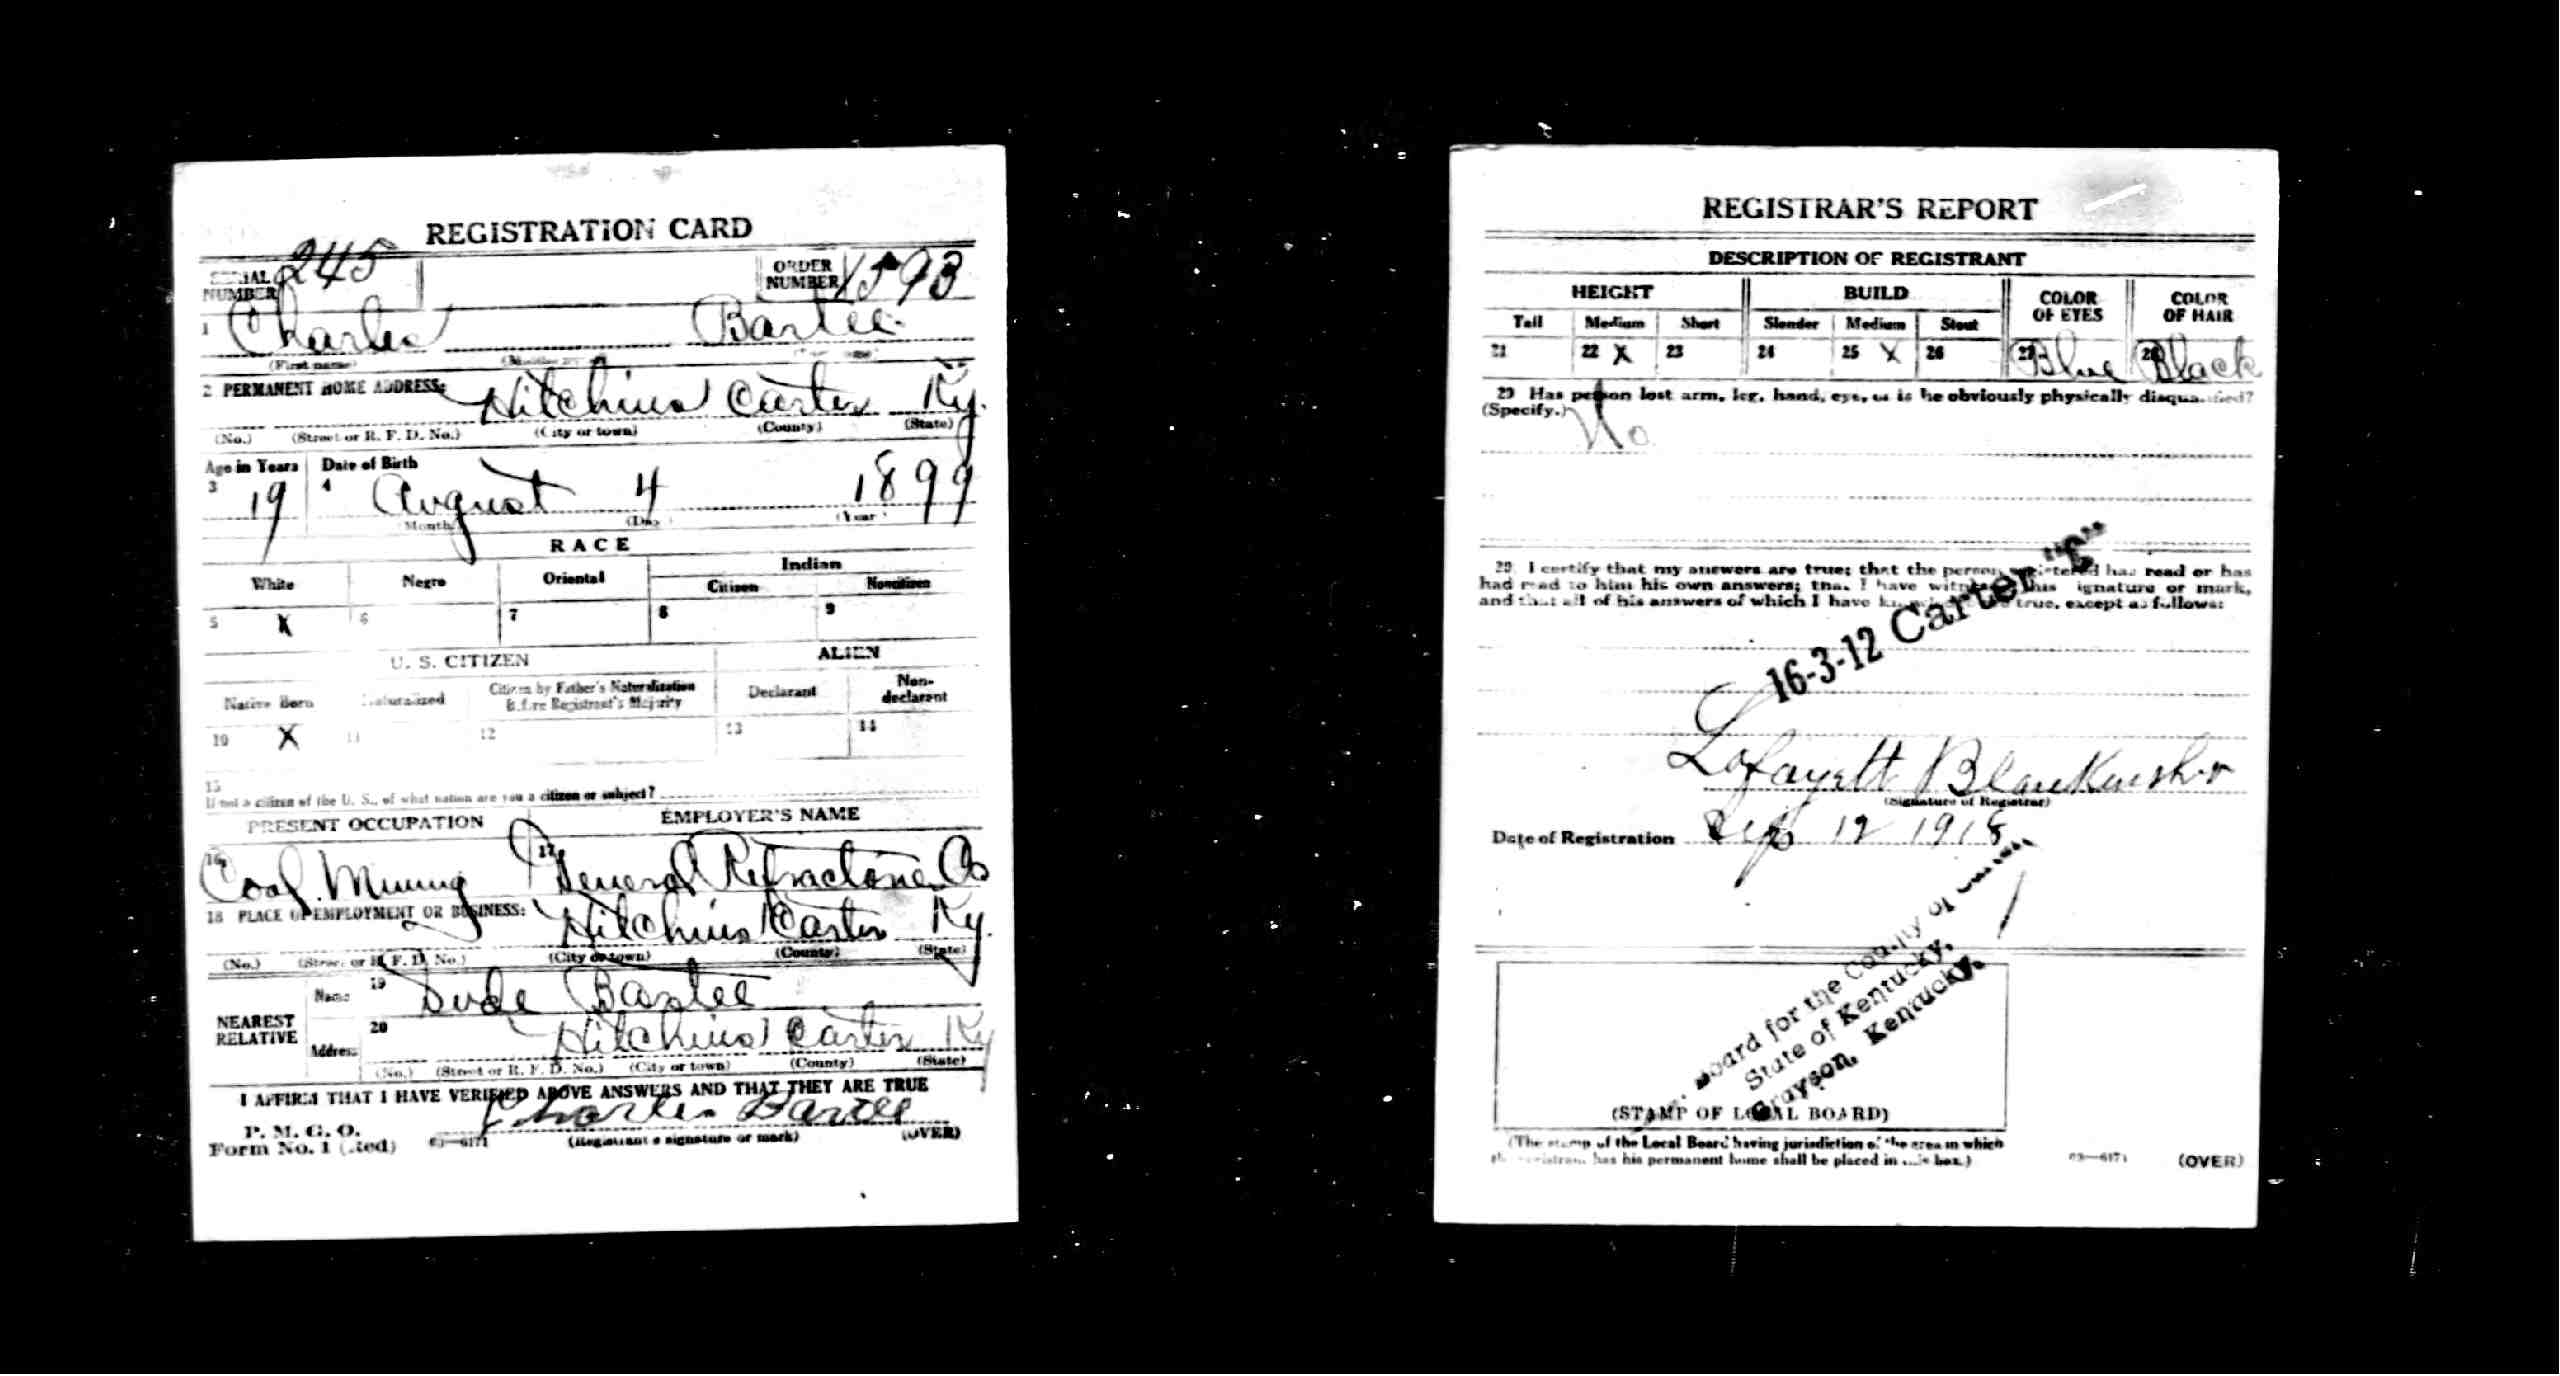 REGISTRATION CARD
SERIAL NUMBER 245 ORDER NUMBER 1593
1 Charles Bartee
(First name)
2 PERMANENT HOME ADDRESS: Hitchins Carter Ky.
(No.) (Street or R. F. D. No.) (City or town) (County) (State)
Age in Years Date of Birth
3 19 4 August 4 1899
(Month) (Day) (Year)
RACE
White Negro Oriental Indian
Citizen Noncitizen
5 X 6 7 8 9
U. S. CITIZEN ALIEN
Native Born Naturalized Citizen by Father's Naturalization Before Registrant's Majority Declarant Non-declarant
10 X 11 12 13 14
15
If not a citizen of the U. S., of what nation are you a citizen or subject?
PRESENT OCCUPATION EMPLOYER'S NAME
16 Coal Mining 17 General Refractories Co
18 PLACE OF EMPLOYMENT OR BUSINESS: Hitchins Carter Ky.
(No.) (Street or R. F. D. No.) (City or town) (County) (State)
NEAREST RELATIVE Name 19 Dude Bartee
Address 20 Hitchins Carter Ky
(No.) (Street or R. F. D. No.) (City or town) (County) (State)
I AFFIRM THAT I HAVE VERIFIED ABOVE ANSWERS AND THAT THEY ARE TRUE
P. M. G. O.
Form No. 1 (Red) 03—6171 Charles Bartee
(Registrant's signature or mark) (OVER)
REGISTRAR'S REPORT
DESCRIPTION OF REGISTRANT
HEIGHT BUILD COLOR OF EYES COLOR OF HAIR
Tall Medium Short Slender Medium Stout
21 22 X 23 24 25 X 26 27 Blue 28 Black
29 Has person lost arm, leg, hand, eye, or is he obviously physically disqualified?
(Specify.) No
I certify that my answers are true; that the person registered has read or has
had read to him his own answers; that I have witnessed his signature or mark,
and that all of his answers of which I have knowledge are true, except as follows:
16-3-12 Carter "C"
Lafayett Blankenship
(Signature of Registrar)
Date of Registration Sep 12 1918
Board for the County of Carter,
State of Kentucky,
Grayson, Kentucky.
(STAMP OF LOCAL BOARD)
(The stamp of the Local Board having jurisdiction of the area in which
the registrant has his permanent home shall be placed in this box.)
03—6171 (OVER)